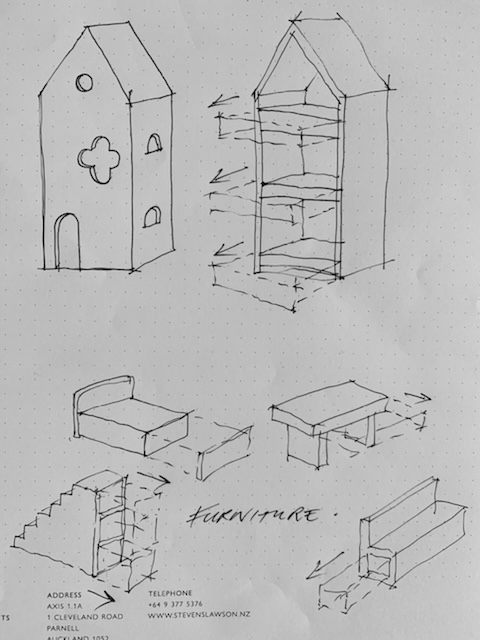 FURNITURE.
ADDRESS
AXIS 1.1A
1 CLEVELAND ROAD
PARNELL
AUCKLAND 1052
TELEPHONE
+64 9 377 5376
WWW.STEVENSLAWSON.NZ
TS